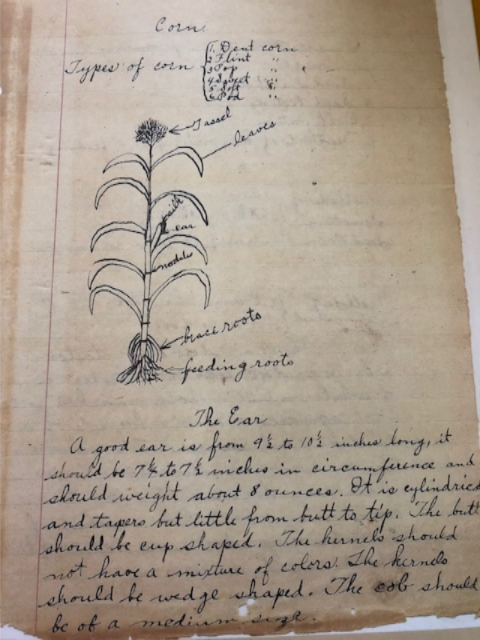 Corn.
Types of corn
1. Dent corn
2 Flint "
3 Pop "
4 Sweet "
5 Soft "
6 Pod "
Tassel
leaves
silk
ear
node
brace roots
feeding roots
The Ear
A good ear is from 9½ to 10½ inches long, it
should be 7¼ to 7½ inches in circumference and
should weight about 8 ounces. It is cylindrical
and tapers but little from butt to tip. The butt
should be cup shaped. The kernels should
not have a mixture of colors. The kernels
should be wedge shaped. The cob should
be of a medium size.